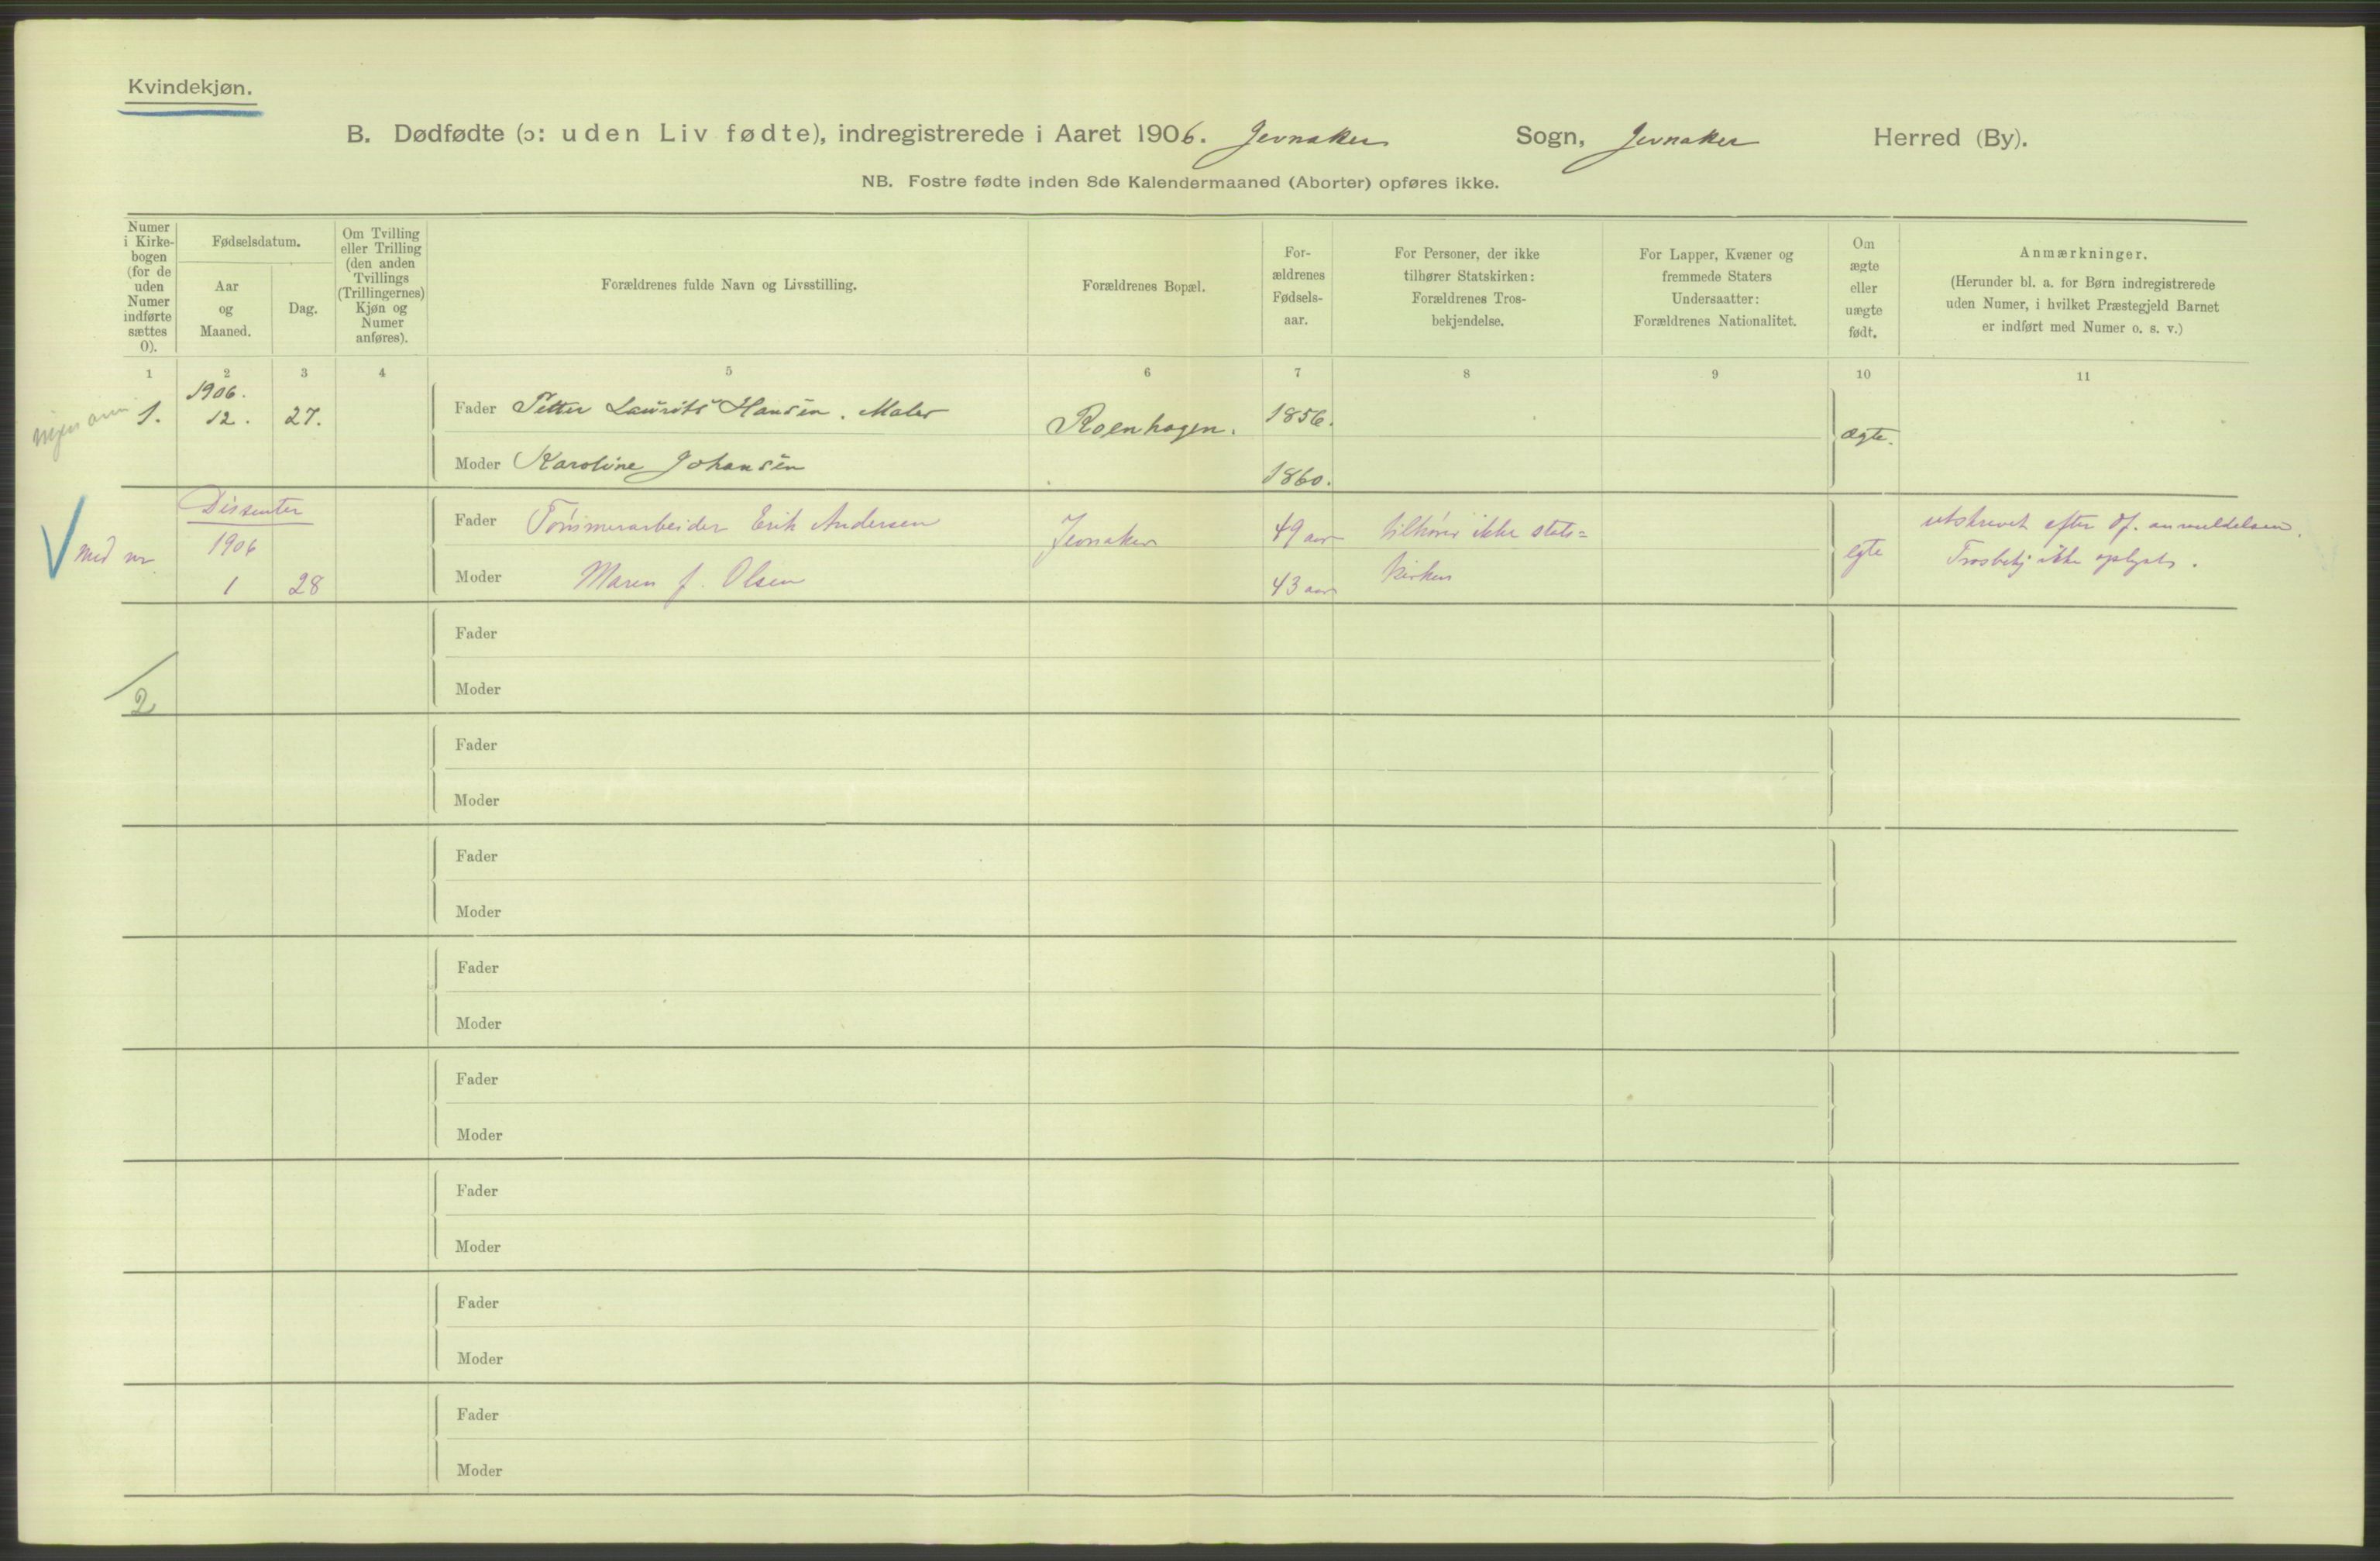 Kvindekjøn.
B. Dødfødte (ɔ: uden Liv fødte), indregistrerede i Aaret 1906. Jevnaker Sogn, Jevnaker Herred (By).
NB. Fostre fødte inden 8de Kalendermaaned (Aborter) opføres ikke.
Numer
i Kirke-
bogen
(for de
uden
Numer
indførte
sættes
0).
Fødselsdatum.
Aar
og
Maaned.
Dag.
Om Tvilling
eller Trilling
(den anden
Tvillings
(Trillingernes)
Kjøn og
Numer
anføres).
Forældrenes fulde Navn og Livsstilling.
Forældrenes Bopæl.
For-
ældrenes
Fødsels-
aar.
For Personer, der ikke
tilhører Statskirken:
Forældrenes Tros-
bekjendelse.
For Lapper, Kvæner og
fremmede Staters
Undersaatter:
Forældrenes Nationalitet.
Om
ægte
eller
uægte
født.
Anmærkninger.
(Herunder bl. a. for Børn indregistrerede
uden Numer, i hvilket Præstegjeld Barnet
er indført med Numer o. s. v.)
1 2 3 4 5 6 7 8 9 10 11
1. 1906. 12. 27. Fader Petter Laurits Hansen. Maler Roenhagen. 1856. ægte.
Moder Karoline Johansen 1860.
Dissenter
med nr 1906 Fader Tømmerarbeider Erik Andersen Jevnaker 49 aar tilhører ikke stats= egte utskrevet efter df. anmeldelsen.
1 28 Moder Maren f. Olsen 43 aar kirken Trosbekj ikke oplyst.
Fader
2 Moder
Fader
Moder
Fader
Moder
Fader
Moder
Fader
Moder
Fader
Moder
Fader
Moder
Fader
Moder